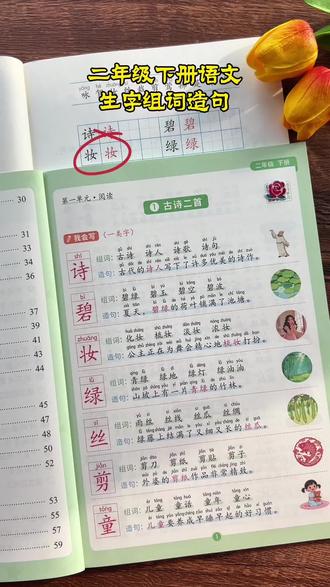 二年级下册语文
生字组词造句
诗 诗 碧 碧
妆 妆 绿 绿
30
31
33
34
36
45
44
47
50
49
52
53
55
57
59
二年级 下册
第一单元·阅读
1 古诗二首
我会写(一类字)
shī
诗
组词：古诗 诗人 诗歌 诗句
造句：古代的诗人写下了许多优美的诗作。
bì
碧
组词：碧绿 碧玉 碧空 碧波
造句：夏天，碧绿的荷叶铺满了池塘。
zhuāng
妆
组词：化妆 梳妆 淡妆 浓妆
造句：公主正在为舞会精心地梳妆打扮。
lǜ
绿
组词：青绿 绿地 绿灯 绿油油
造句：山坡上有一片青绿的竹林。
sī
丝
组词：雨丝 丝线 丝瓜 丝绸
造句：绿藤上结满了又细又长的丝瓜。
jiǎn
剪
组词：剪刀 剪纸 剪贴 剪子
造句：外婆的剪纸作品非常精致。
tóng
童
组词：儿童 童话 童年 童心
造句：儿童要养成早睡早起的好习惯。
1